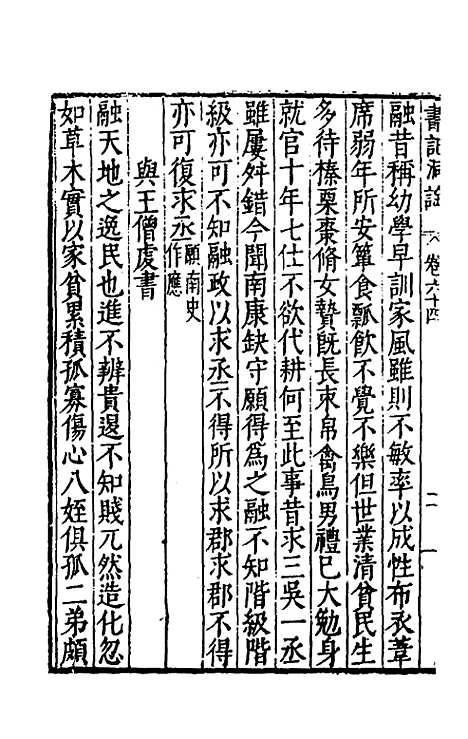 書記洞詮 卷六十四 二
融昔稱幼學早訓家風雖則不敏率以成性布衣葦
席弱年所安簞食瓢飲不覺不樂但世業清貧民生
多待榛栗棗脩女贄旣長束帛禽鳥男禮已大勉身
就官十年七仕不欲代耕何至此事昔求三吳一丞
雖屢舛錯今聞南康缺守願得爲之融不知階級階
級亦可不知融政以求丞不得所以求郡求郡不得
亦可復求丞願南史作應
與王僧虔書
融天地之逸民也進不辨貴退不知賤兀然造化忽
如草木實以家貧累積孤寡傷心八姪俱孤二弟頗